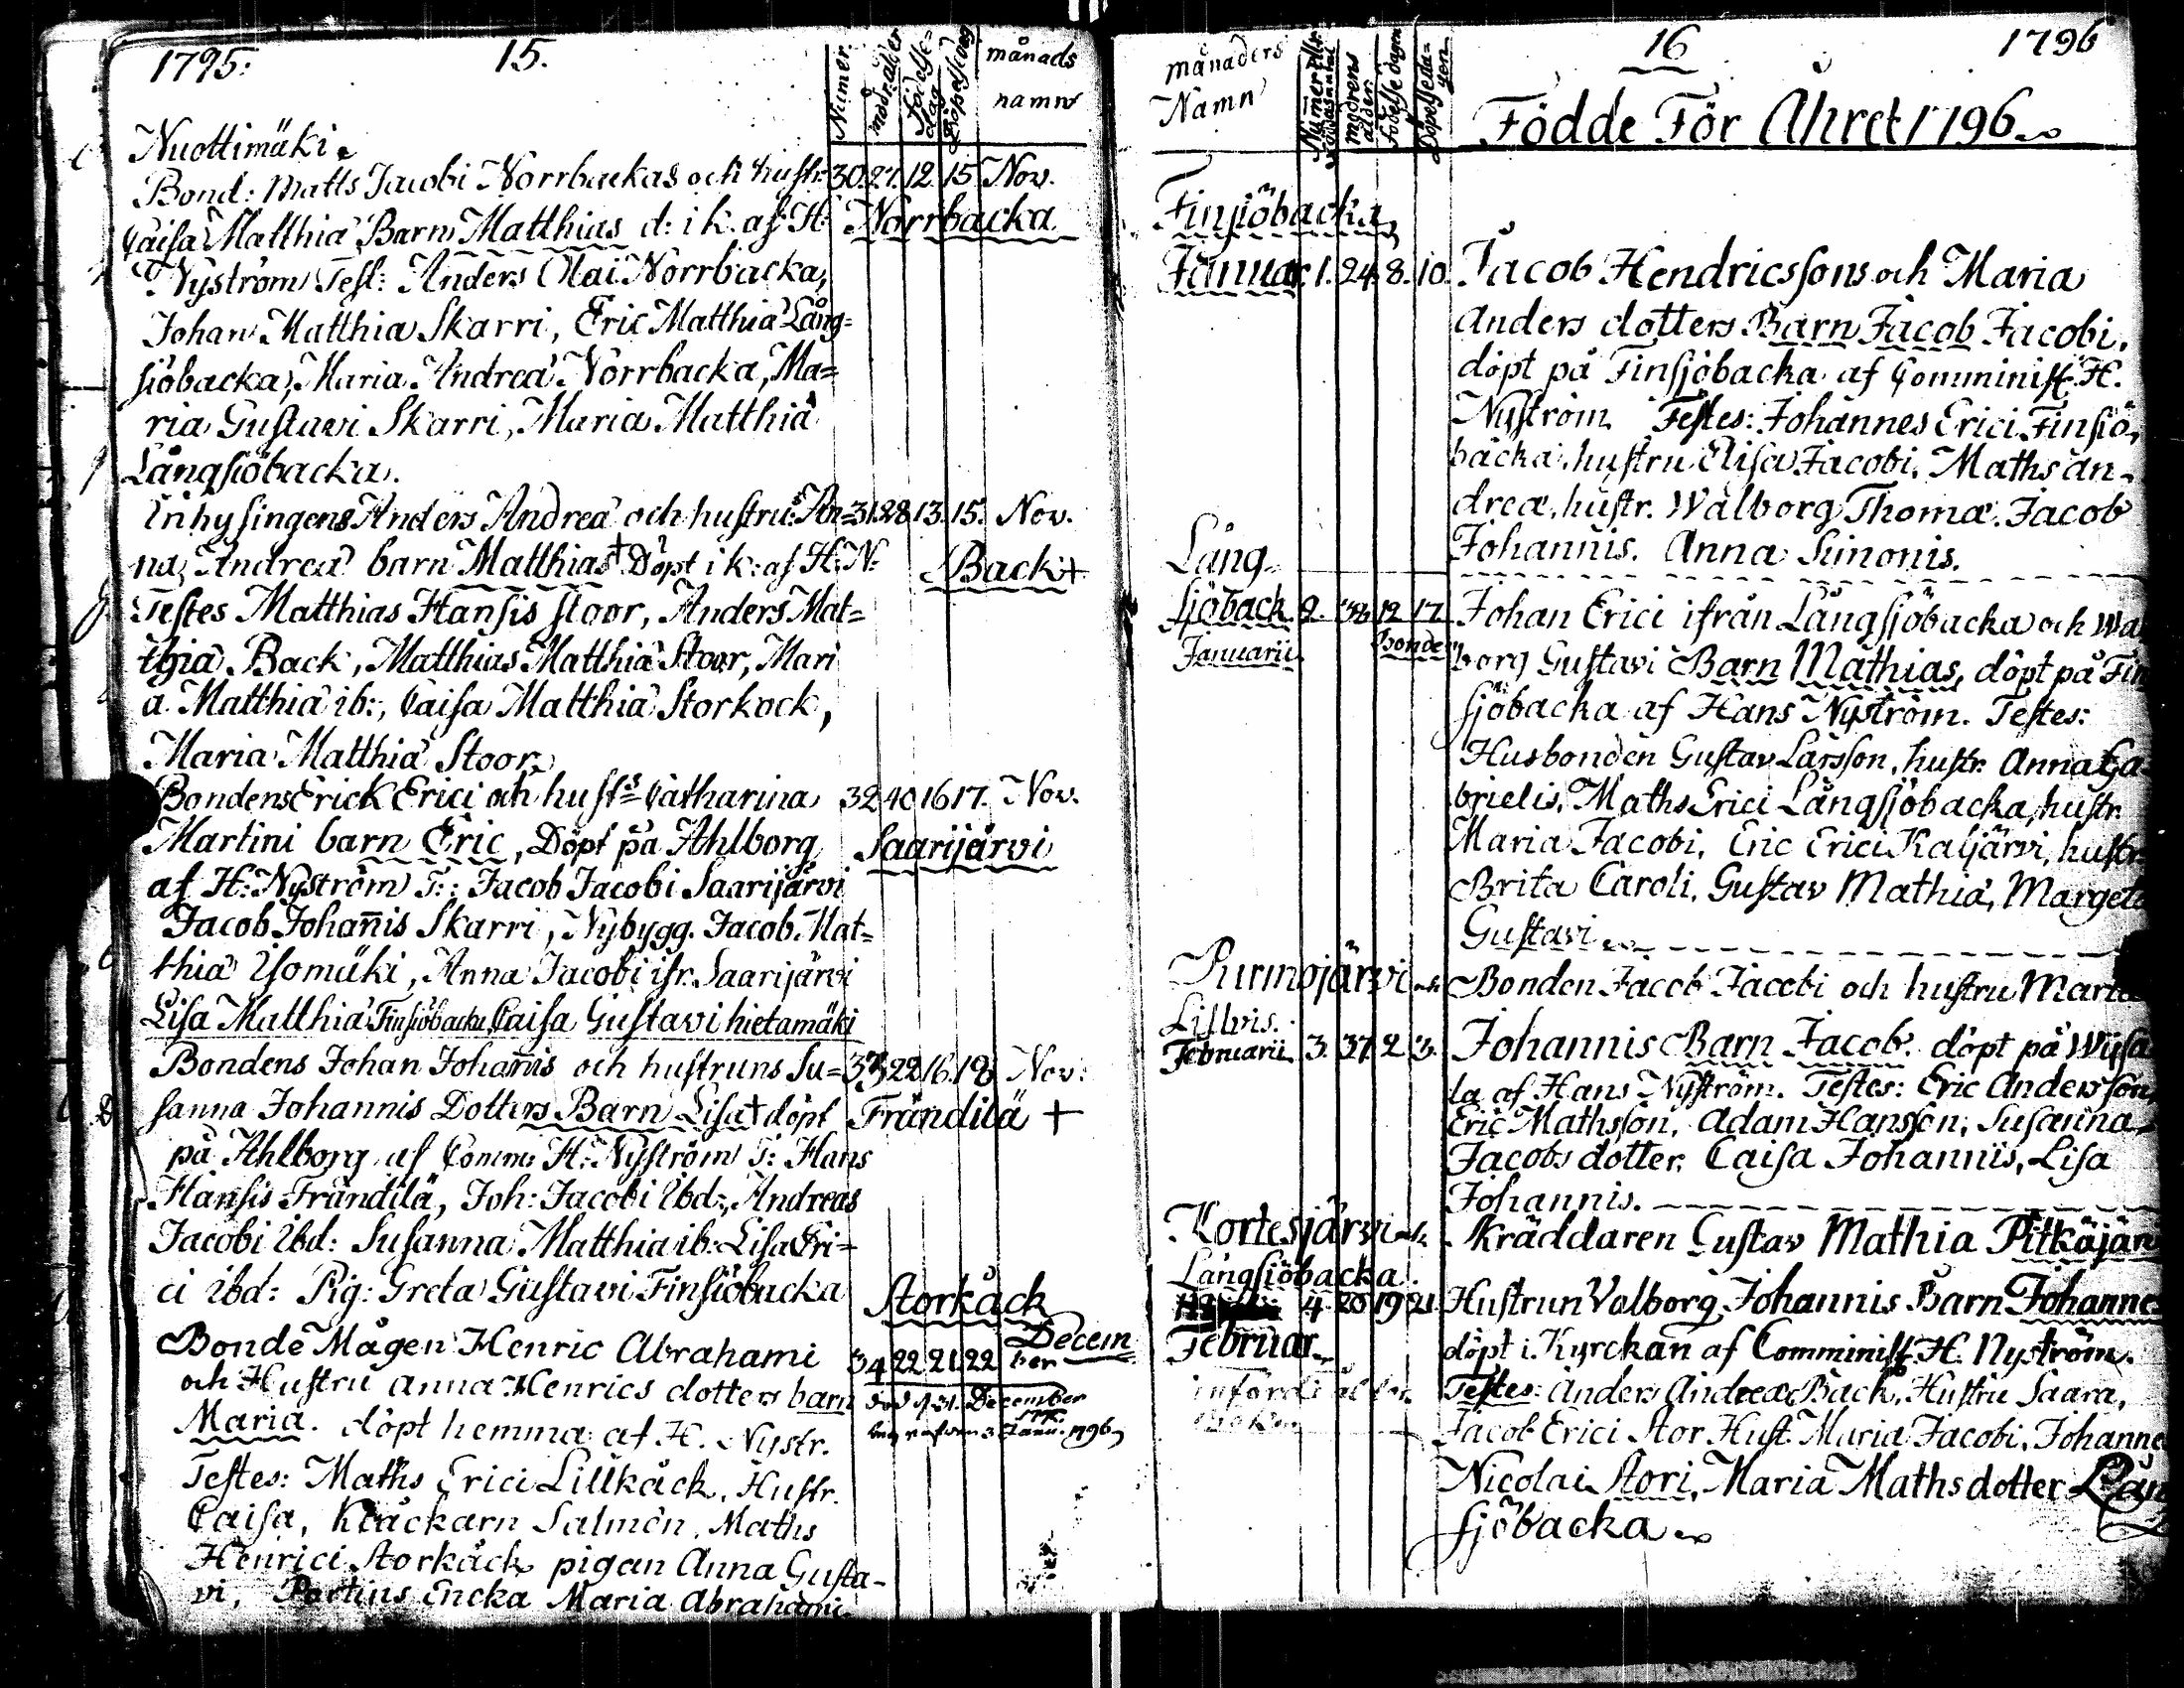 1795. 15.
Numer. modr. ålder Födelsedag Döpelsedag månads namn
Nuottimäki.
Bond: Matts Jacobi Norrbackas och hustr: 30. 27. 12. 15 Nov.
Caisa Matthiä Barn Matthias d: i k. af H: Norrbacka
Nyström Test: Anders Olai Norrbacka,
Johan Matthiä Skarri, Eric Matthiä Lång=
siöbacka, Maria Andreä Norrbacka, Ma=
ria Gustavi Skarri, Maria Matthiä
Långsiöbacka.
Inhysingens Anders Andreä och hustru: An= 31. 28. 13. 15. Nov.
na Andreä barn Matthias + Döpt i k: af H: N: Back +
Testes Matthias Hansis Stoor, Anders Mat=
thiä Back, Matthias Matthiä Stoor, Mari
a Matthiä ib:, Caisa Matthiä Storkock,
Maria Matthiä Stoor.
Bondens Erick Erici och hust:s Catharina 32 40 16 17. Nov.
Martini barn Eric, Döpt på Ahlborg Saarijärvi
af H: Nyström T: Jacob Jacobi Saarijärvi
Jacob Johan̄is Skarri, Nybygg. Jacob Mat=
thiä Isomäki, Anna Jacobi ifr. Saarijärvi
Lisa Matthiä Finsiöbacka, Caisa Gustavi hietamäki
Bondens Johan Johan̄is och hustruns Su= 33 22 16. 18 Nov:
sanna Johannis Dotters Barn Lisa + döpt Frändilä +
på Ahlborg af Comm: H: Nyström T: Hans
Hansis Frändilä, Joh: Jacobi Ibd:, Andreas
Jacobi Ibd: Susanna Matthiä ib: Lisa Eri=
ci Ibd: Pig: Greta Gustavi Finsiöbacka
Storkåck
Bonde Mågen Henric Abrahami 34 22 21. 22 Decem ber
och Hustru Anna Henrics dotters barn död d. 31. December
Maria. döpt hemma af H. Nystr. 3 Janu. 1796
Testes: Maths Erici Lillkåck, Hustr.
Caisa, Salmon, Maths
Henrici Storkåck pigan Anna Gusta-
vi, Encka Maria Abrahami
16 1796
månaders Namn Numer modrens ålder. födelse dagen Döpelse dagen
Födde För Åhret 1796
Finsiöbacka
Januar. 1. 24. 8. 10. Jacob Hendricssons och Maria
Anders dotters Barn Jacob Jacobi.
döpt på Finsjöbacka af Comminist. H.
Nyström Testes: Johannes Erici Finsiö-
backa, hustru Elisa Jacobi. Maths An-
dreæ, hustr. Walborg Thomæ. Jacob
Johannis. Anna Simonis.
Lång-
sjöback 2. 38 12 17. Johan Erici ifrån Långsjöbacka och Wal
Januarii bonde borg Gustavi Barn Mathias, döpt på Fin
sjöbacka af Hans Nyström. Testes:
Husbonden Gustav Larsson, hustr. Anna Ga-
brielis. Maths Erici Långsjöbacka, hustr.
Maria Jacobi, Eric Erici Kaljärvi, hustr.
Brita Caroli, Gustav Mathiä, Margeta
Gustavi
Purmojärvi Bonden Jacob Jacobi och hustru Maria
Lillvis.
Februarii 3. 37. 2. 3. Johannis Barn Jacob. döpt på Wisa
la af Hans Nyström. Testes: Eric Andersson,
Eric Mathsson, Adam Hansson, Susanna
Jacobs dotter, Caisa Johannis, Lisa
Johannis.
Kortesjärvi Skräddaren Gustav Mathiä Pitkäjän
Långsjöbacka.
4. 20 19 21. Hustrun Valborg Johannis Barn Johannes
Februar. döpt i Kyrckan af Comminist. H. Nyström.
införd Testes: Anders Andreæ Back, Hustru Saara,
Jacob Erici Stor Hust. Maria Jacobi. Johannes
Nicolai Stori, Maria Mathsdotter Lång
sjöbacka